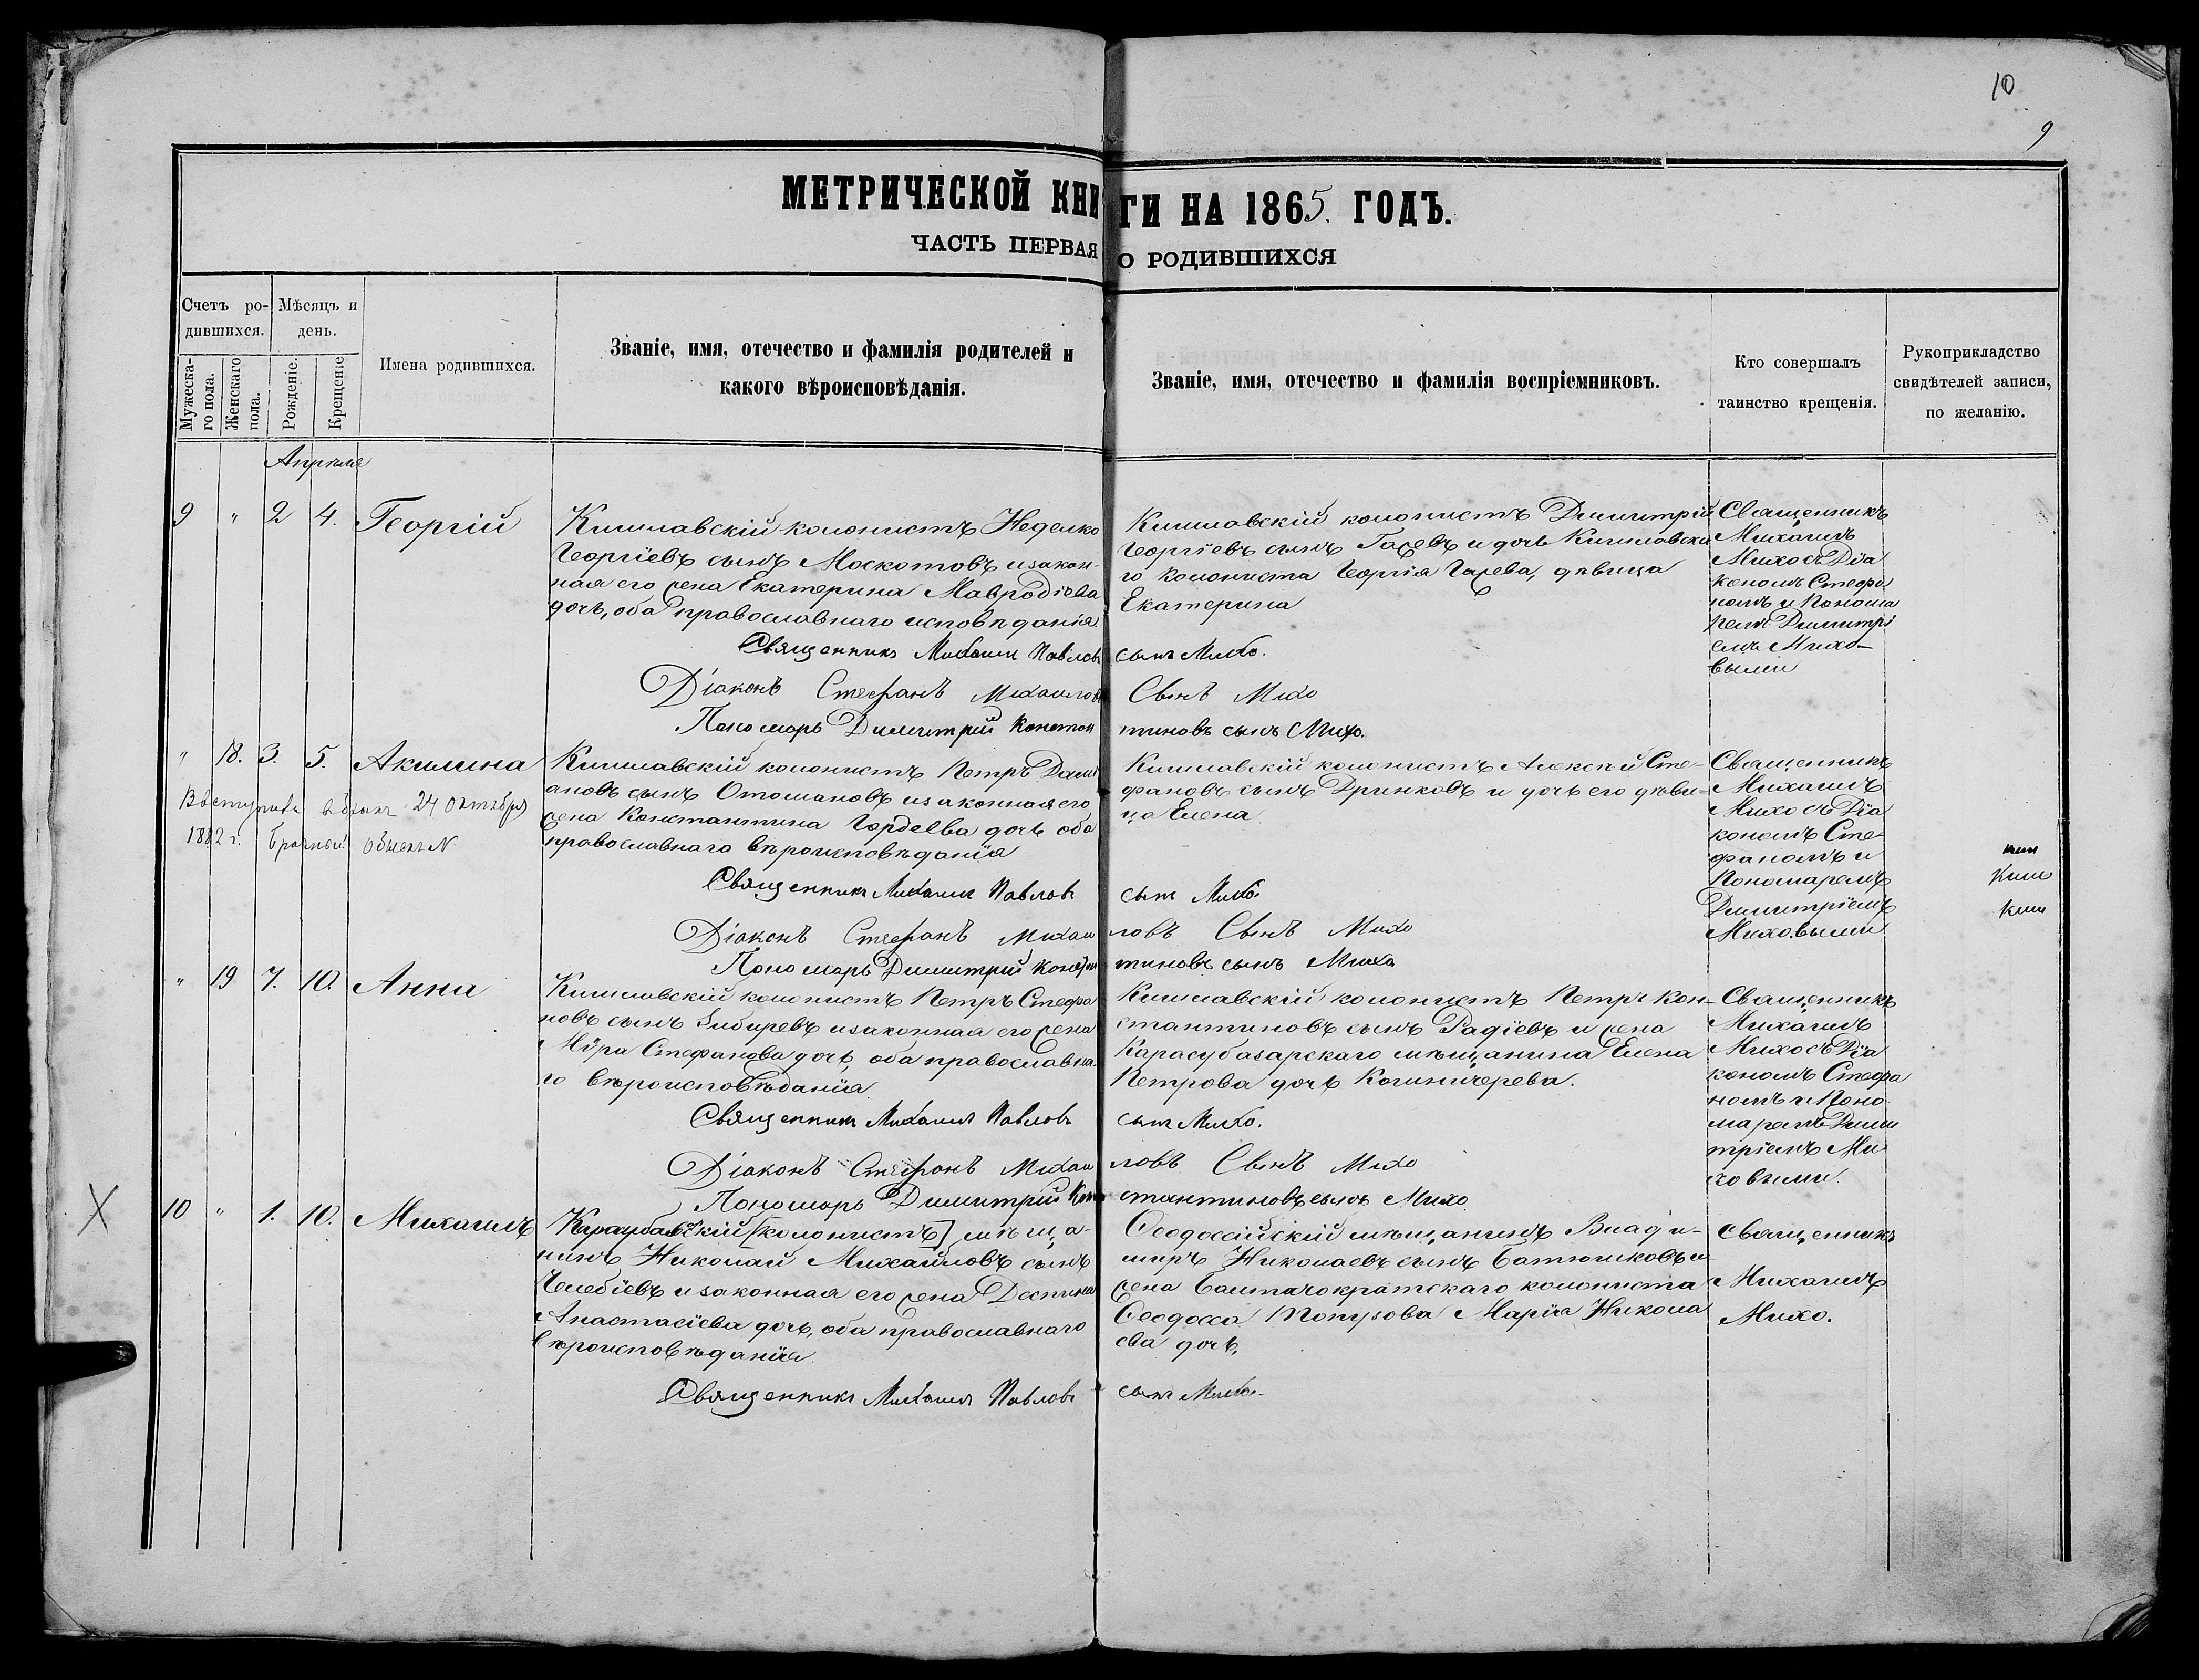 10
9
МЕТРИЧЕСКОЙ КНИГИ НА 1865. ГОДЪ.
ЧАСТЬ ПЕРВАЯ О РОДИВШИХСЯ
Счетъ ро-
дившихся.
Мужеска-
го пола.
Женскаго
пола.
Мѣсяцъ и
день.
Рожденіе.
Крещеніе
Имена родившихся.
Званіе, имя, отечество и фамилія родителей и
какого вѣроисповѣданія.
Званіе, имя, отечество и фамилія воспріемниковъ.
Кто совершалъ
таинство крещенія.
Рукоприкладство
свидѣтелей записи,
по желанію.
Апрѣля
9 " 2 4. Георгій
Кишлавскій колонистъ Неделко
Георгіевъ сынъ Москотовъ и закон-
ная его жена Екатерина Мавродіева
дочь, оба православнаго исповѣданія
Кишлавскій колонистъ Димитрій
Георгіевъ сынъ Гажевъ и дочь Кишлавска
го колониста Георгія Гажева, дѣвица
Екатерина
Священникъ
Михаилъ
Михо съ Діа
кономъ Стефа
номъ и Понома
ремъ Димитрі
емъ Михо-
выми
Священникъ Михаилъ Павловъ сынъ Михо.
Діаконъ Стефанъ Михаиловъ Сынъ Михо
Пономарь Димитрій Констан тиновъ сынъ Михо.
" 18. 3. 5. Акилина
Вступила въ бракъ 24 Октября
1882 г. Брачный обыскъ N
Кишлавскій колонистъ Петръ Дами
ановъ сынъ Отомановъ и законная его
жена Константина Гордеева дочь оба
православнаго вѣроисповѣданія
Кишлавскій колонистъ Алексѣй Сте-
фановъ сынъ Дринковъ и дочь его дѣви-
ца Елена
Священникъ
Михаилъ
Михо съ Діа
кономъ Сте-
фаномъ и
Пономаремъ
Димитріемъ
Миховыми
Священникъ Михаилъ Павловъ сынъ Михо.
Діаконъ Стефанъ Михаи ловъ Сынъ Михо
Пономарь Димитрій Констан тиновъ сынъ Михо
" 19 7. 10. Анна
Кишлавскій колонистъ Петръ Стефа
новъ сынъ Зибиревъ и законная его жена
Мура Стефанова дочь, оба православна-
го вѣроисповѣданія
Кишлавскій колонистъ Петръ Кон-
стантиновъ сынъ Радіевъ и жена
Карасубазарскаго мѣщанина Елена
Петрова дочь
Священникъ
Михаилъ
Михо съ Діа
кономъ Стефа
номъ и Поно-
маремъ Дими
тріемъ Ми-
ховыми.
Священникъ Михаилъ Павловъ сынъ Михо.
Діаконъ Стефанъ Михаи ловъ Сынъ Михо
Пономарь Димитрій Кон стантиновъ сынъ Михо
10 " 1. 10. Михаилъ
[колонистъ] мѣща-
нинъ Николай Михайловъ сынъ
Челебіевъ и законная его жена Деспина
Анастасіева дочь, оба православнаго
вѣроисповѣданія
Ѳеодоссійскій мѣщанинъ Влади-
миръ Николаевъ сынъ Батюшковъ и
жена колониста
Ѳеодосса Мария Никола
ева дочь,
Священникъ
Михаилъ
Михо.
Священникъ Михаилъ Павловъ сынъ Михо.